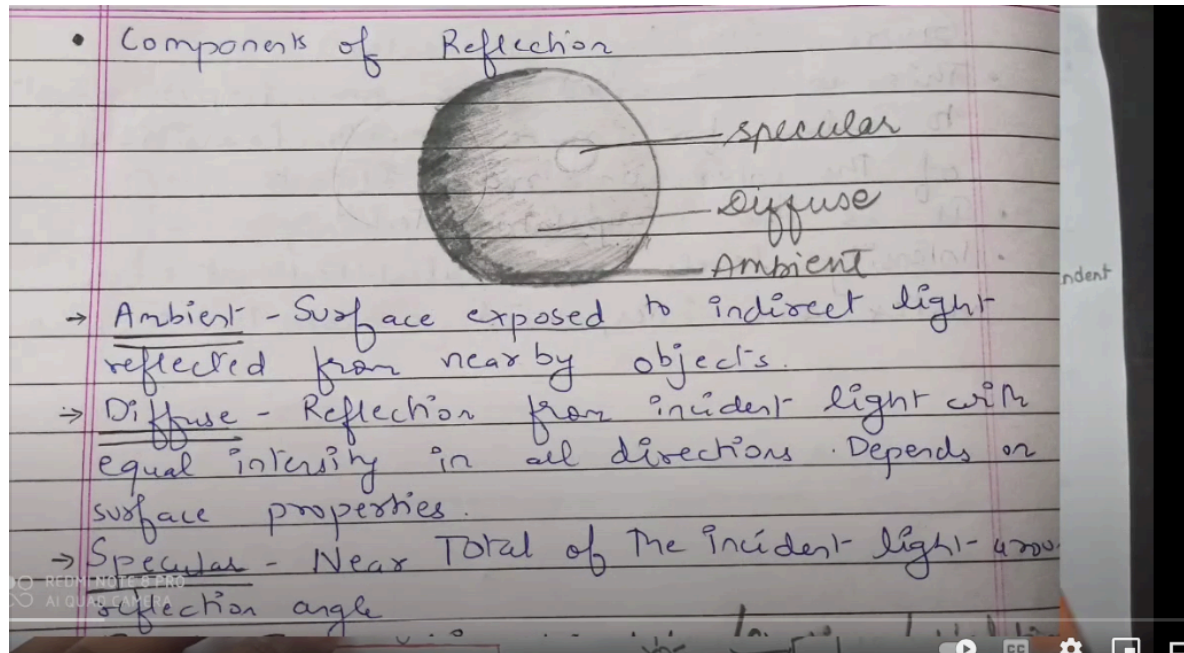 • Components of Reflection
specular
Diffuse
Ambient
ndent
→ Ambient - Surface exposed to indirect light
reflected from nearby objects.
→ Diffuse - Reflection from incident light with
equal intensity in all directions. Depends on
surface properties.
→ Specular - Near Total of the incident light arou
reflection angle
REDMI NOTE 8 PRO
AI QUAD CAMERA
CC